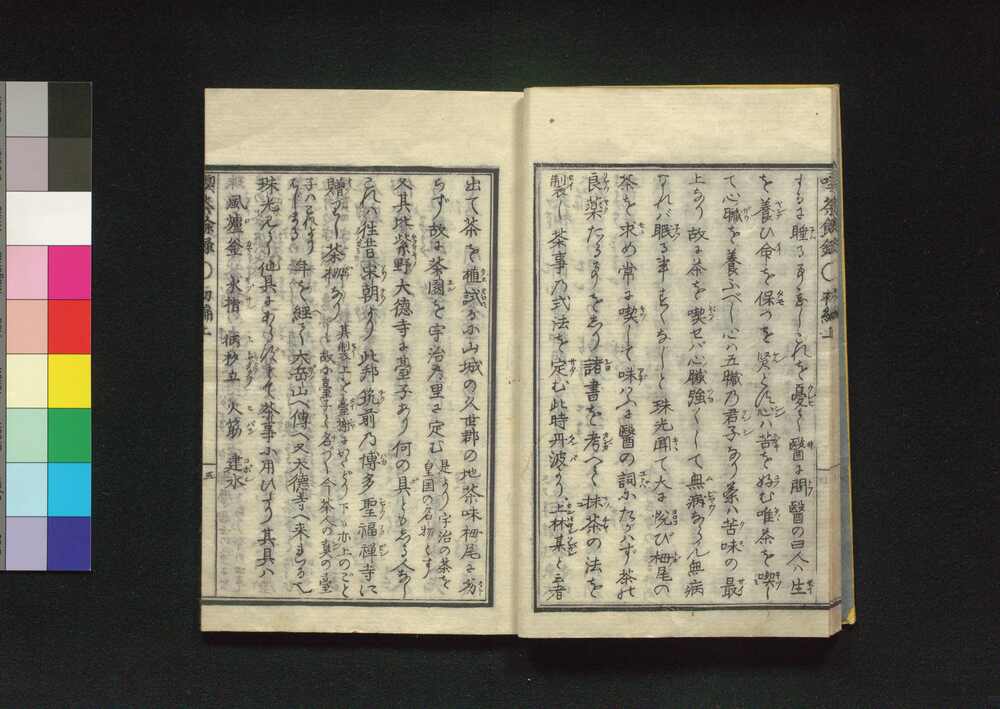 喫茶餘録 初編上
する時は睡るまじこれを憂て醫に問醫の曰人は生
を養ひ命を保つを賢とす心は苦を好む唯茶を喫し
て心臓を養ふべし心は五臓の君子なり茶は苦味の最
上なり故に茶を喫せバ心臓強くして無病なり無病
なれバ眠る事すくなしと珠光聞て大に悦び栂尾の
茶を求め常に喫して味はふに醫の詞にたがハず茶は
良薬たる事をしり諸書を考へて抹茶の法を
製し茶事の式法を定む此時丹波より上林某と云者
出て茶を植試るに山城の久世郡の地茶味栂尾に劣
らず故に茶園を宇治の里に定む是より宇治の茶を皇国の名物とす
又其比紫野大徳寺に臺子あり何の具ともしる人なし
これハ往昔宋朝より此邦筑前の博多聖福禅寺に
贈りし茶棚あり
年を経て大岳山へ傳へ又大徳寺へ来りしなり
珠光見て仙具にあらずとて茶事に用ひたり其具ハ
風爐釜 水指 柄杓立 火筋 建水
喫茶餘録 初編上
五